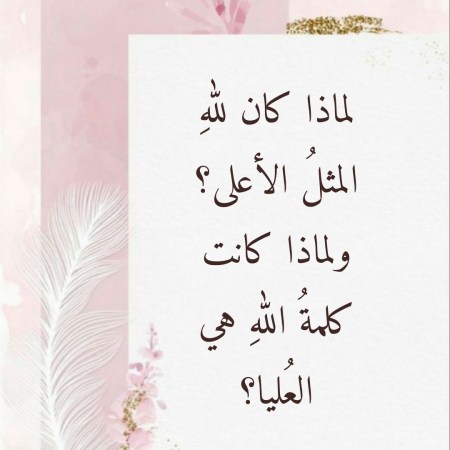 لماذا كان للهِ
المثلُ الأعلى؟
ولماذا كانت
كلمةُ اللهِ هي
العُليا؟